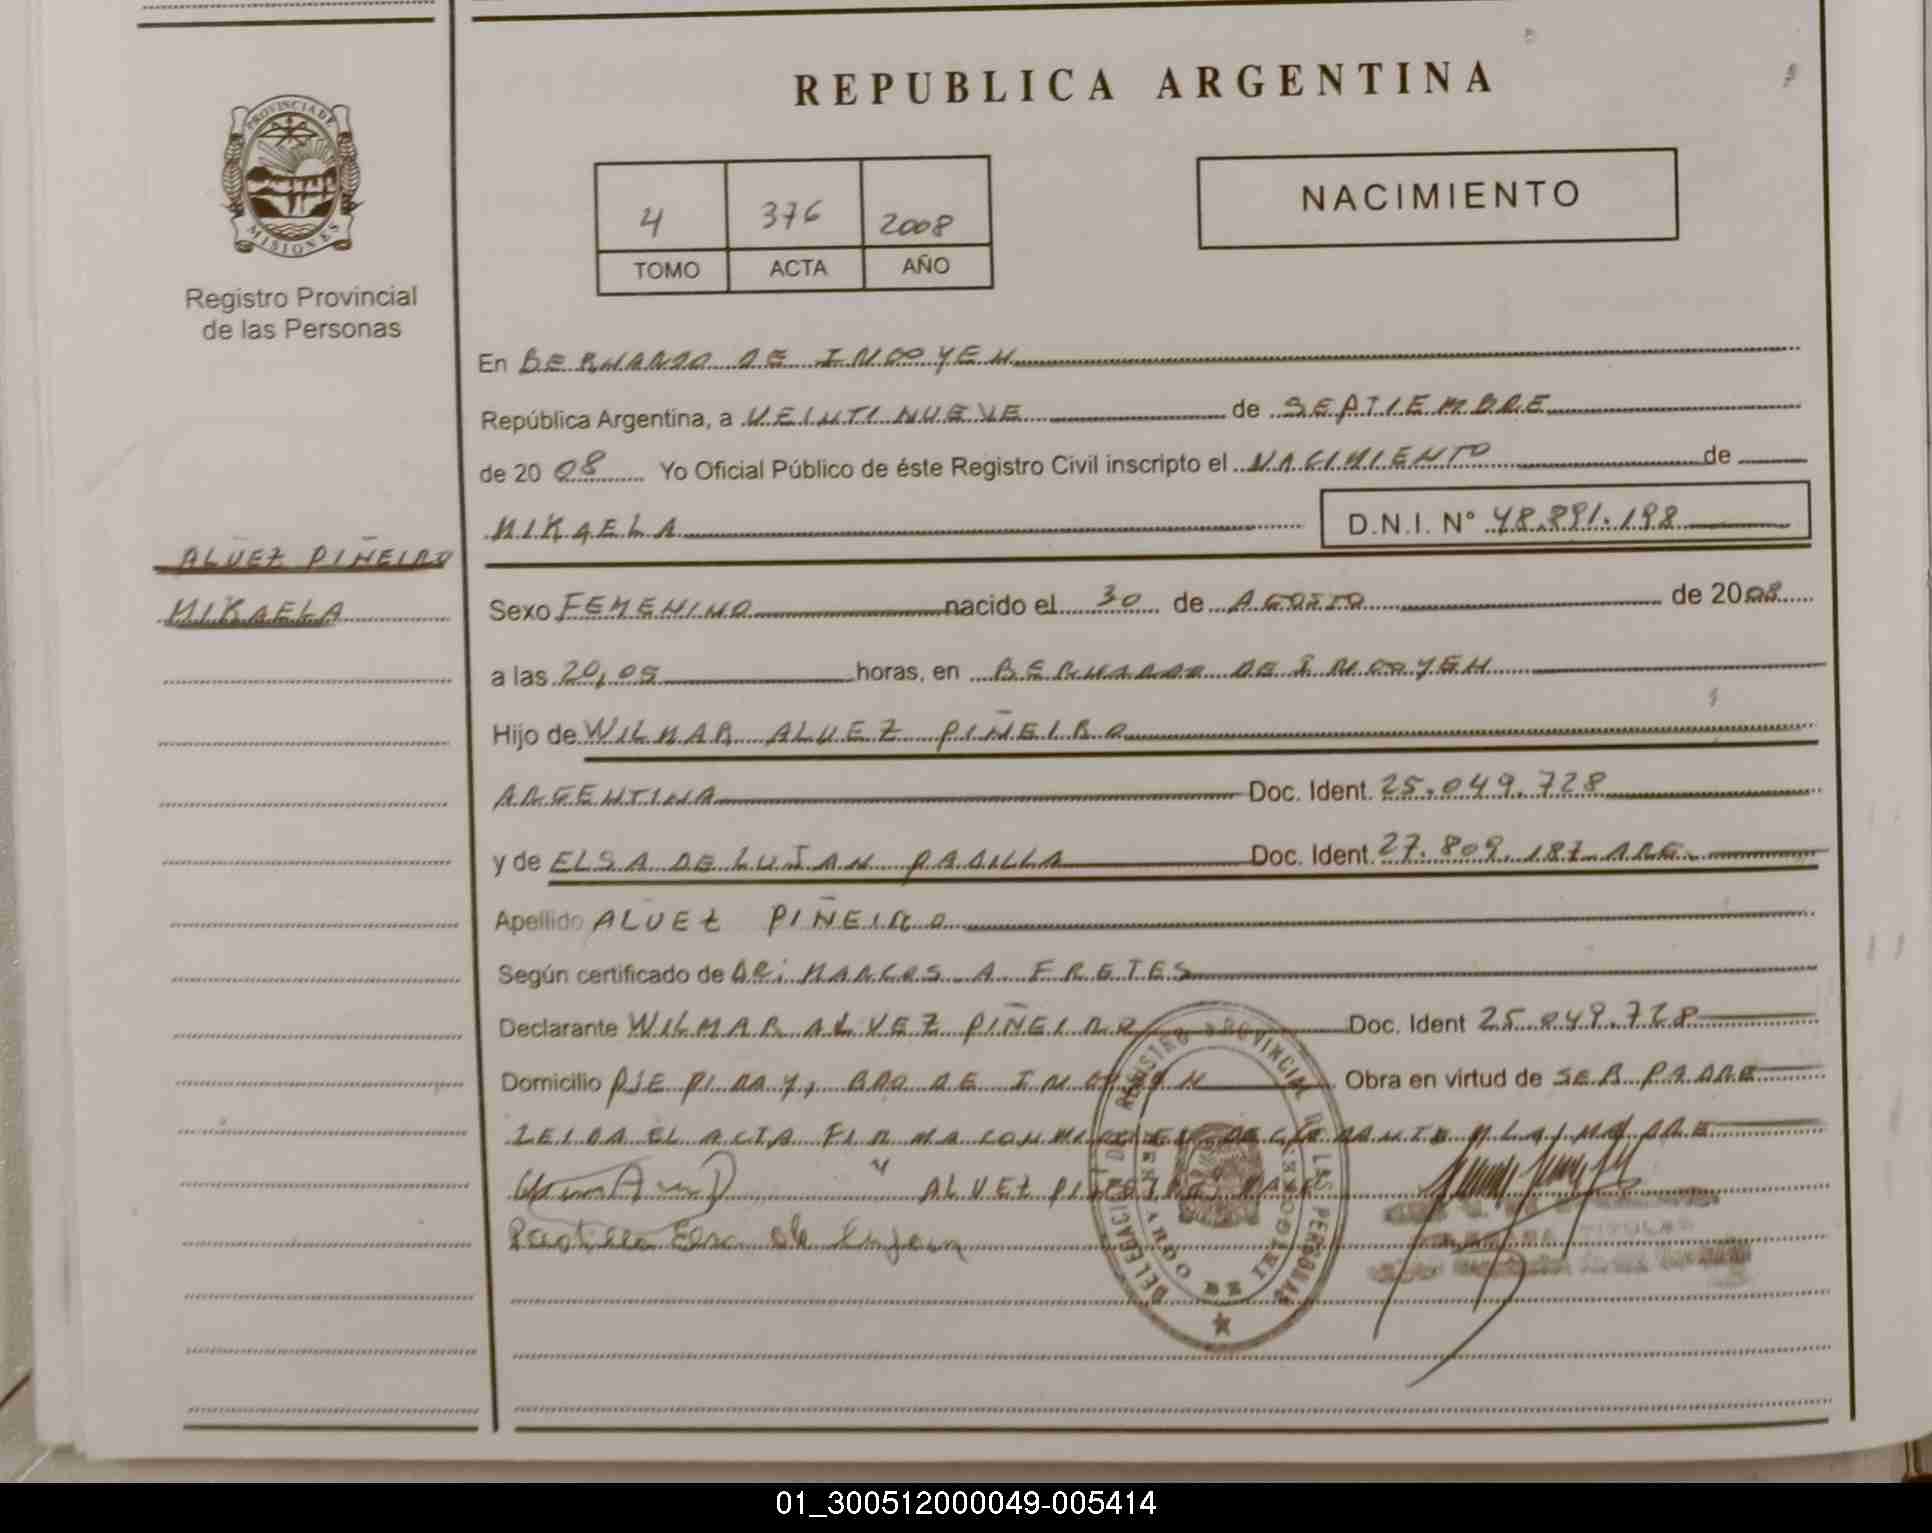 REPUBLICA ARGENTINA
PROVINCIA DE
MISIONES
Registro Provincial
de las Personas
4 376 2008
TOMO ACTA AÑO
NACIMIENTO
En BERNARDO DE IRIGOYEN
República Argentina, a VEINTINUEVE de SEPTIEMBRE
de 2008 Yo Oficial Público de éste Registro Civil inscripto el NACIMIENTO de
MIKAELA D.N.I. N° 48.891.198
ALVEZ PIÑEIRO
MIKAELA
Sexo FEMENINO nacido el 30 de AGOSTO de 2008
a las 20,05 horas, en BERNARDO DE IRIGOYEN
Hijo de WILMAR ALVEZ PIÑEIRO
ARGENTINA Doc. Ident. 25.049.728
y de ELSA DE LUJAN PADILLA Doc. Ident. 27.809.187 ARG.
Apellido ALVEZ PIÑEIRO
Según certificado de DR. MARCOS A FRETES
Declarante WILMAR ALVEZ PIÑEIRO Doc. Ident 25.049.728
Domicilio PJE PIRAY, BDO DE IRIGOYEN Obra en virtud de SER PADRE
LEIDA EL ACTA FIRMA CONMIGO EL DECLARANTE Y LA MADRE
ALVEZ PIÑEIRO
Padilla Elsa de Lujan
DELEGACION REGISTRO PROVINCIAL DE LAS PERSONAS
BERNARDO DE IRIGOYEN
01_300512000049-005414